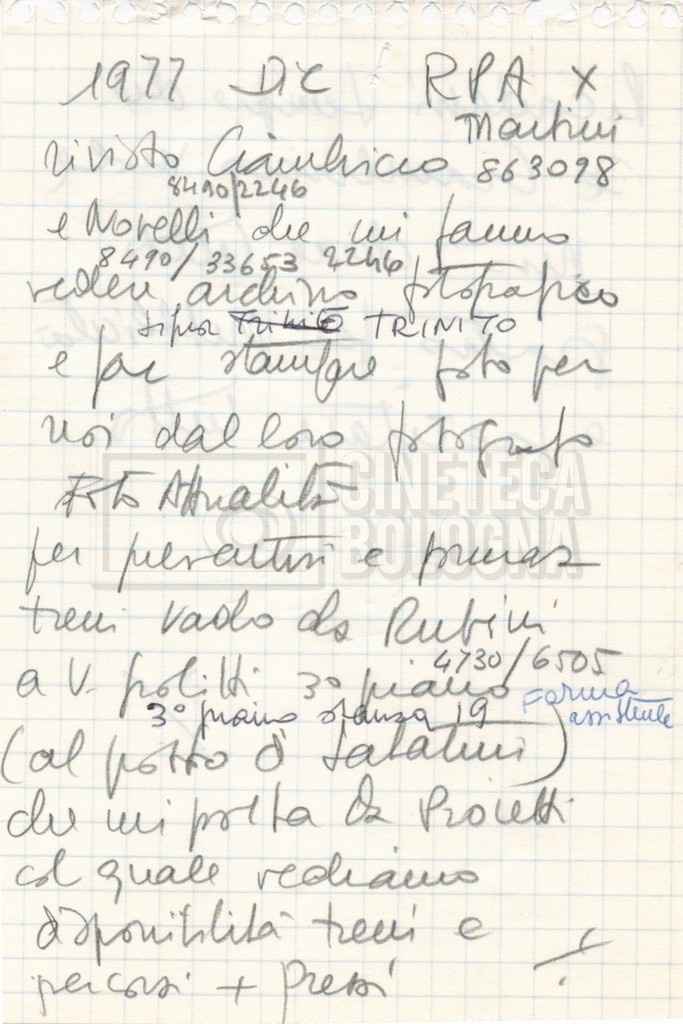 1977 Dic RPA x
Martini
rivisto Ciambricco 863098
8490/2246
e Novelli che mi fanno
8490/33653 2246
vedere archivio fotografico
TRINITO
e far stampare foto per
noi dal loro fotografo
Foto Attualità
per preventivi e
treni vado da Rubini
4730/6505
a V. politti 3° piano
3° piano stanza 19 Farina
assistente
(al posto di Sabatini)
che mi porta da Proietti
col quale vediamo
disponibilità treni e
percorsi + prezzi
CINETECA
BOLOGNA